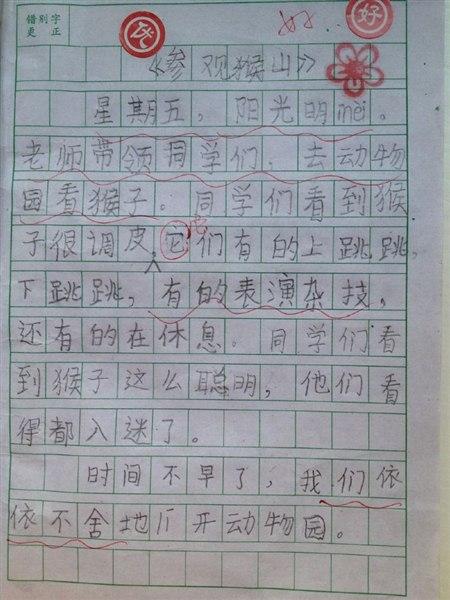 错别字
更正
好
好
《参观猴山》
星期五，阳光明mèi。
老师带领同学们，去动物
园看猴子。同学们看到猴
它
子很调皮，它们有的上跳跳，
下跳跳，有的表演杂技，
还有的在休息。同学们看
到猴子这么聪明，他们看
得都入迷了。
时间不早了，我们依
依不舍地厅开动物园。